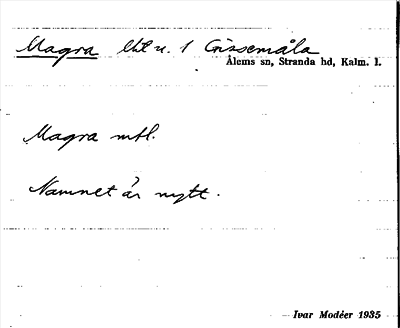 Magra lht u. 1 Grissemåla
Ålems sn, Stranda hd, Kalm. l.
Magra mtl.
Namnet är nytt.
Ivar Modéer 1935